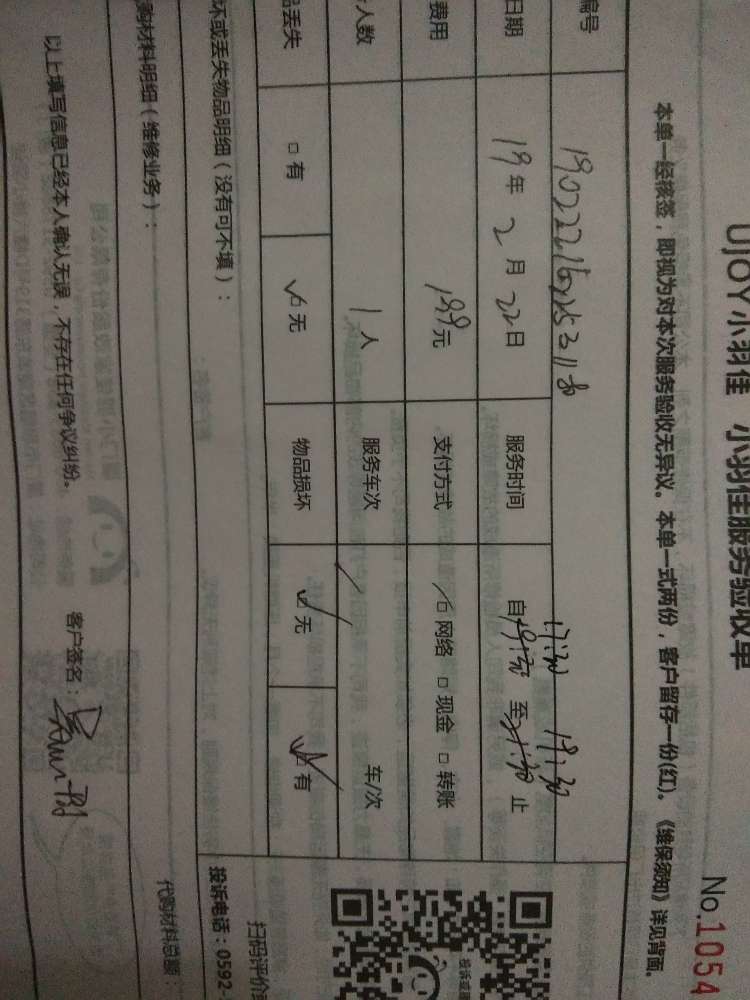 UJOY小羽佳 小羽佳服务验收单
No.1054
本单一经核签，即视为对本次服务验收无异议。本单一式两份，客户留存一份(红)。《维保须知》详见背面。
编号
日期 19年2月22日 服务时间 自17:30至19:30止
费用 199元 支付方式 ☑网络 □现金 □转账
人数 1人 服务车次 / 车/次
品丢失 □有 ☑无 物品损坏 ☑无 ☑有
坏或丢失物品明细（没有可不填）：
扫码评价
投诉电话：0592-
购材料明细（维修业务）：
代购材料总额：
以上填写信息已经本人确认无误，不存在任何争议纠纷。 客户签名：